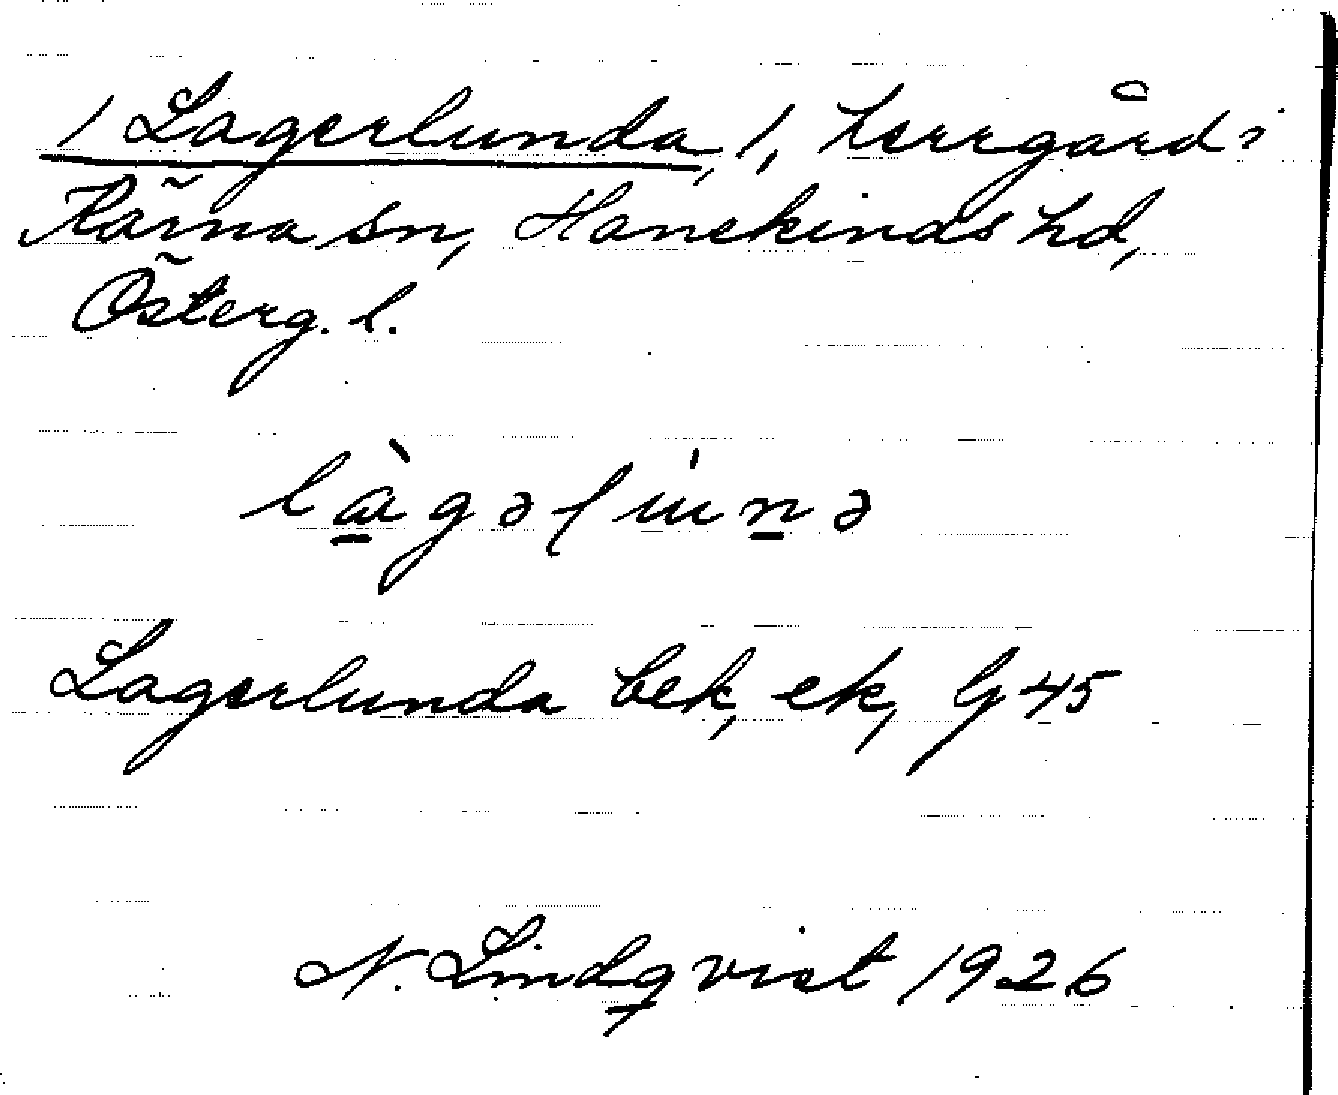 1 Lagerlunda, 1, herrgård i
Kärna sn, Hanekinds hd,
Österg. l.
làgəlúnə
Lagerlunda bek, ek, G 45
N. Lindqvist 1926